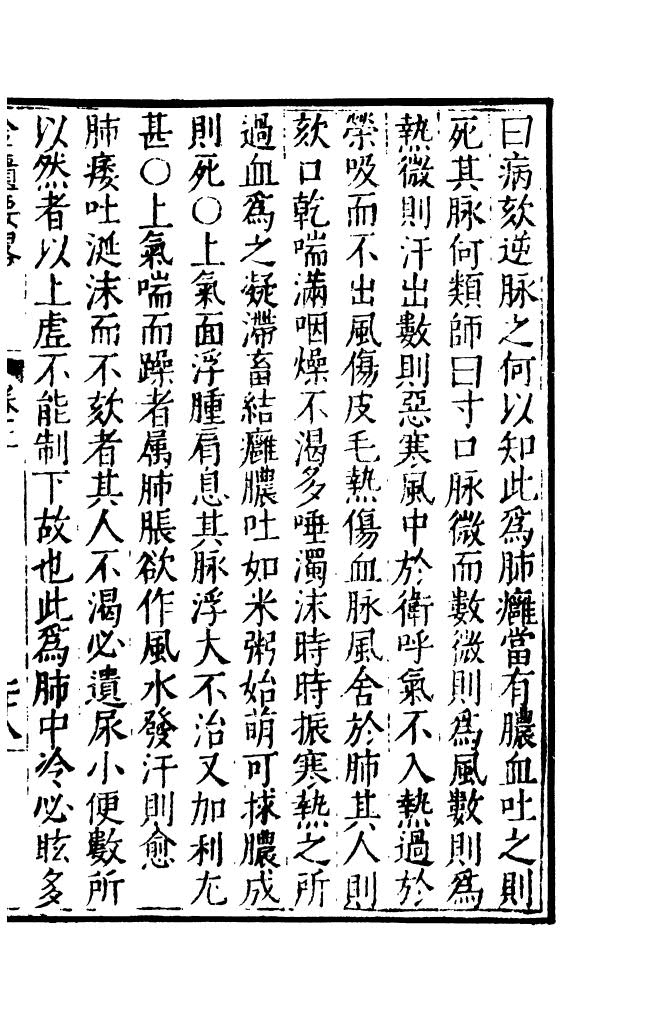 曰病欬逆脉之何以知此爲肺癰當有膿血吐之則
死其脉何類師曰寸口脉微而數微則爲風數則爲
熱微則汗出數則惡寒風中於衛呼氣不入熱過於
榮吸而不出風傷皮毛熱傷血脉風舍於肺其人則
欬口乾喘滿咽燥不渴多唾濁沫時時振寒熱之所
過血爲之凝滯畜結癰膿吐如米粥始萌可捄膿成
則死〇上氣面浮腫肩息其脉浮大不治又加利尤
甚〇上氣喘而躁者属肺脹欲作風水發汗則愈
肺痿吐涎沫而不欬者其人不渴必遺尿小便數所
以然者以上虛不能制下故也此爲肺中冷必眩多